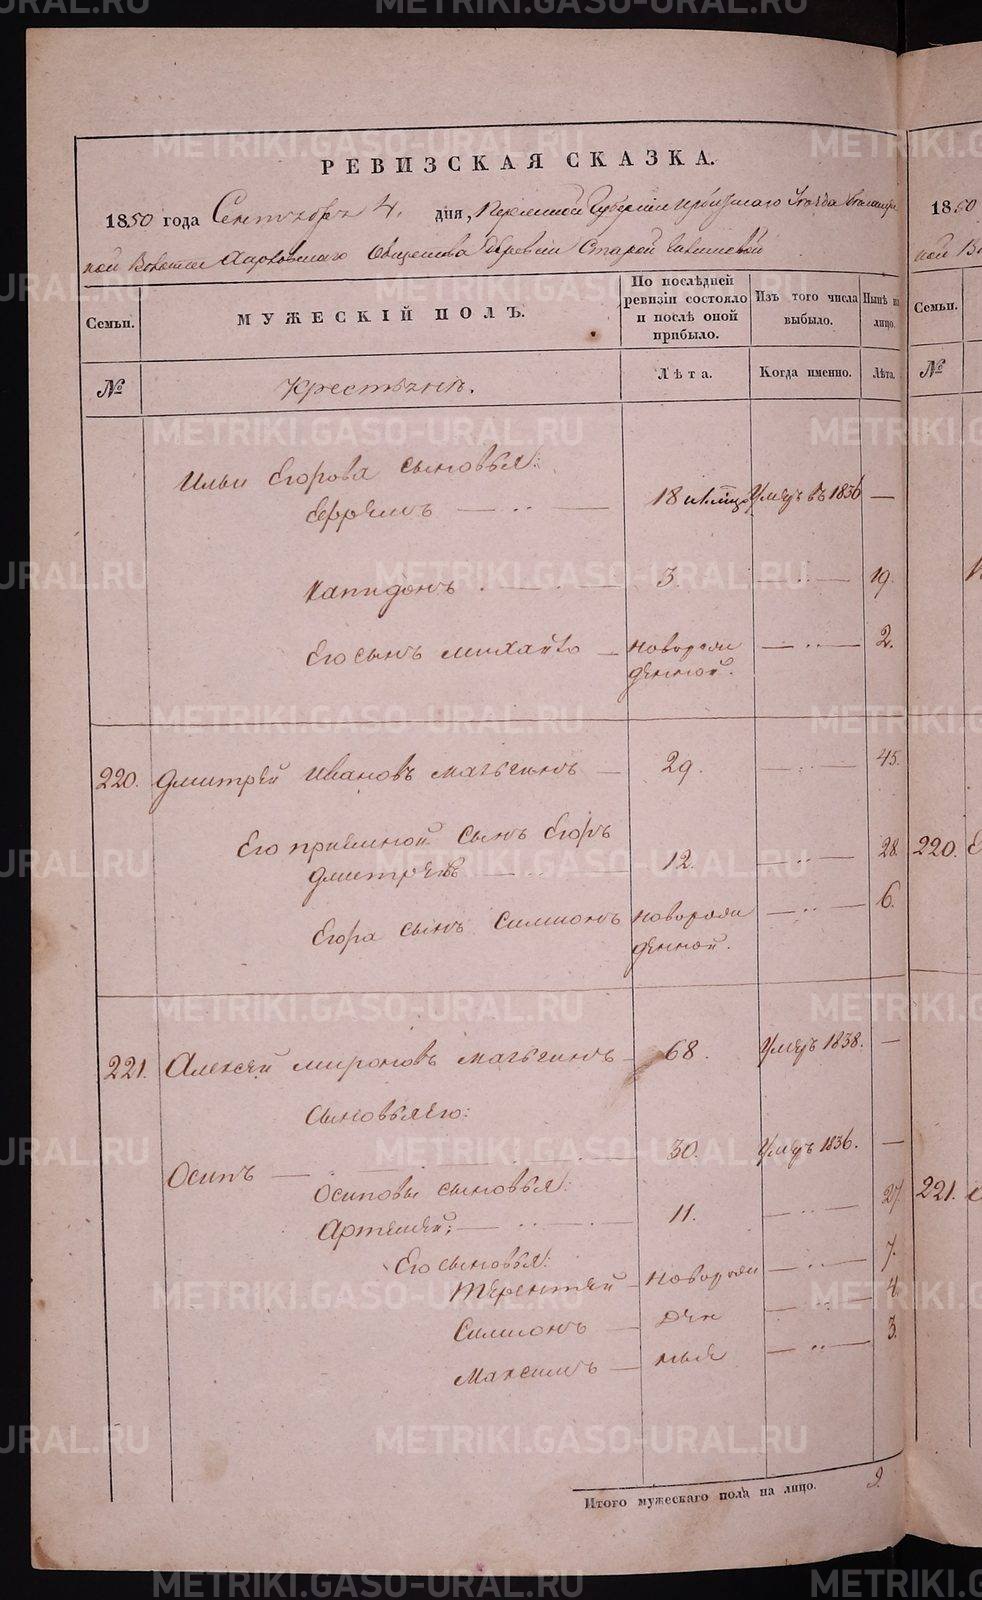 РЕВИЗСКАЯ СКАЗКА.
1850 года Сентября 4. дня, Пермской Губернии Ирбитскаго Уезда
кой Волости Харловскаго Общества деревни Старой
Семьи.
МУЖЕСКІЙ ПОЛЪ.
По послѣдней ревизіи состояло и послѣ оной прибыло.
Изъ того числа выбыло.
Нынѣ на лицо.
№
Крестьянъ.
Лѣта.
Когда именно.
Лѣта.
Ильи Егорова сыновья:
Ефремъ — 18 Умеръ въ 1836 —
Капидонъ — 3. — 19.
Его сынъ Михайло — новорож — 2.
денной.
220. Дмитрей Ивановъ — 29. — 45.
Его приемной сынъ Егоръ
Дмитревъ — 12. — 28.
Егора сынъ Симионъ новорож — 6.
денной.
221. Алексей Мироновъ — 68. Умеръ 1838. —
Сыновья его:
Осипъ — 30. Умеръ 1836. —
Осиповы сыновья:
Артемей: — 11. — 27.
Его сыновья:
Терентей — новорож — 7.
Симионъ — ден — 4.
Максимъ — ные — 3.
Итого мужескаго пола на лицо. 9.
1850
кой Во
Семьи.
№
220. Е
221.
METRIKI.GASO-URAL.RU